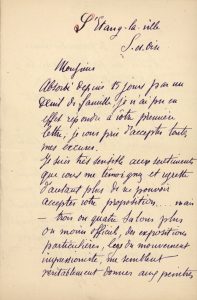 L'Etang-la-ville
S.-et-Oise
Monsieur
Absorbé depuis 15 jours par un
deuil de famille je n'ai pu en
effet répondre à votre première
lettre, je vous prie d'accepter toutes
mes excuses.
Je suis très sensible aux sentiments
que vous me témoignez et regrette
d'autant plus de ne pouvoir
accepter votre proposition... mais
— trois ou quatre salons plus
ou moins officiel, des expositions
particulières, loges du mouvement
impressioniste, me semblent
véritablement donner aux peintres,